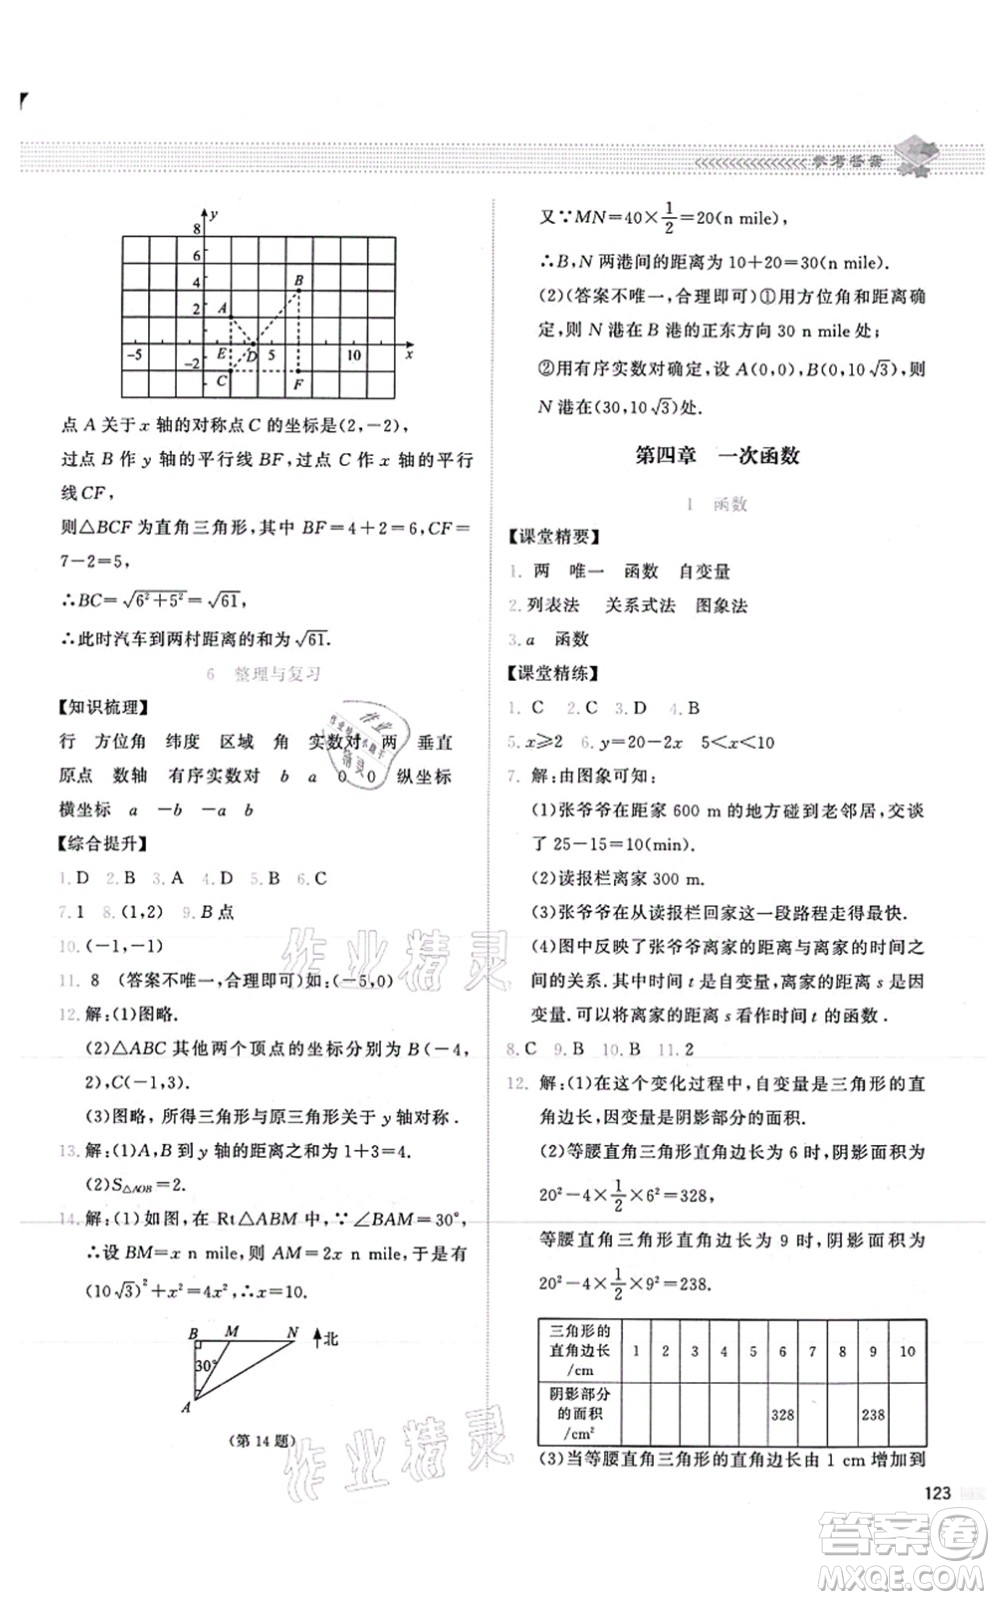 参考答案
y
8
6
4
2
-2
-5
5
10
x
A
B
C
D
E
F
点 A 关于 x 轴的对称点 C 的坐标是(2,-2),
过点 B 作 y 轴的平行线 BF,过点 C 作 x 轴的平行
线 CF,
则△BCF 为直角三角形,其中 BF=4+2=6,CF=
7-2=5,
∴BC=√(6²+5²)=√61,
∴此时汽车到两村距离的和为√61.
6 整理与复习
【知识梳理】
行 方位角 纬度 区域 角 实数对 两 垂直
原点 数轴 有序实数对 b a 0 0 纵坐标
横坐标 a -b -a b
【综合提升】
1. D 2. B 3. A 4. D 5. B 6. C
7. 1 8. (1,2) 9. B 点
10. (-1,-1)
11. 8 (答案不唯一,合理即可)如:(-5,0)
12. 解:(1)图略.
(2)△ABC 其他两个顶点的坐标分别为 B(-4,
2),C(-1,3).
(3)图略,所得三角形与原三角形关于 y 轴对称.
13. 解:(1)A,B 到 y 轴的距离之和为 1+3=4.
(2)S△AOB=2.
14. 解:(1)如图,在 Rt△ABM 中,∵∠BAM=30°,
∴设 BM=x n mile,则 AM=2x n mile,于是有
(10√3)²+x²=4x²,∴x=10.
B M N 北
30°
A
(第 14 题)
又∵MN=40×1/2=20(n mile),
∴B,N 两港间的距离为 10+20=30(n mile).
(2)(答案不唯一,合理即可)①用方位角和距离确
定,则 N 港在 B 港的正东方向 30 n mile 处;
②用有序实数对确定,设 A(0,0),B(0,10√3),则
N 港在(30,10√3)处.
第四章 一次函数
1 函数
【课堂精要】
1. 两 唯一 函数 自变量
2. 列表法 关系式法 图象法
3. a 函数
【课堂精练】
1. C 2. C 3. D 4. B
5. x≥2 6. y=20-2x 5<x<10
7. 解:由图象可知:
(1)张爷爷在距家 600 m 的地方碰到老邻居,交谈
了 25-15=10(min).
(2)读报栏离家 300 m.
(3)张爷爷在从读报栏回家这一段路程走得最快.
(4)图中反映了张爷爷离家的距离与离家的时
间的关系.其中时间 t 是自变量,离家的距离 s 是因
变量.可以将离家的距离 s 看作时间 t 的函数.
8. C 9. B 10. B 11. 2
12. 解:(1)在这个变化过程中,自变量是三角形的直
角边长,因变量是阴影部分的面积.
(2)等腰直角三角形直角边长为 6 时,阴影面积为
20²-4×1/2×6²=328,
等腰直角三角形直角边长为 9 时,阴影面积为
20²-4×1/2×9²=238.
三角形的直角边长/cm 1 2 3 4 5 6 7 8 9 10
阴影部分的面积/cm² 328 238
(3)当等腰直角三角形的直角边长由 1 cm 增加到
123
作业精灵
作业精灵
作业精灵
答案卷
MXQE.COM